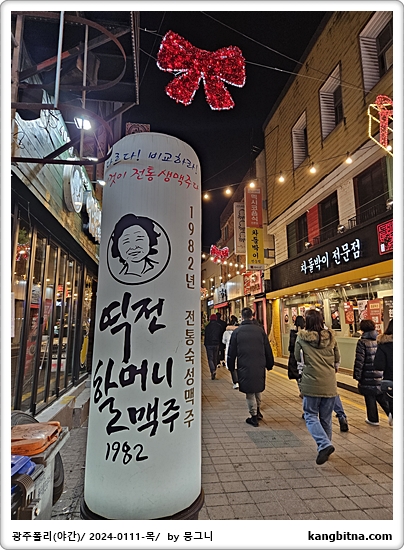 다르다! 비교하라!
것이 전통 생맥주다
1982년 전통숙성맥주
역전
할머니
맥주
1982
차돌박이 전문점
차돌박이
광주폴리(야간)/ 2024-0111-목/ by 뭉그니
kangbitna.com